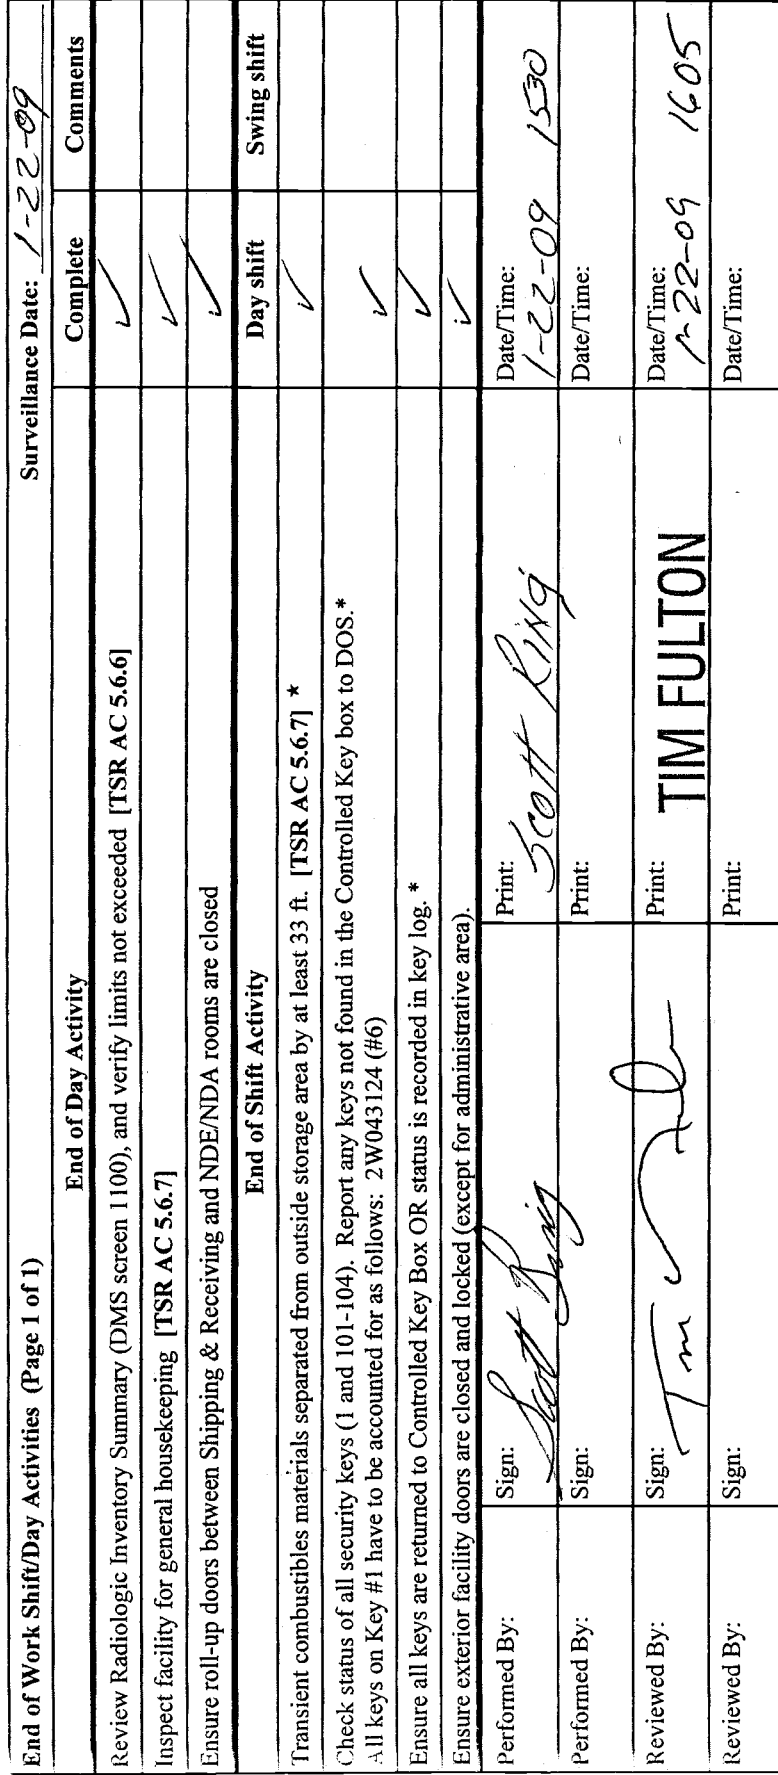 End of Work Shift/Day Activities (Page 1 of 1) Surveillance Date: 1-22-09
End of Day Activity Complete Comments
Review Radiologic Inventory Summary (DMS screen 1100), and verify limits not exceeded [TSR AC 5.6.6] ✓
Inspect facility for general housekeeping [TSR AC 5.6.7] ✓
Ensure roll-up doors between Shipping & Receiving and NDE/NDA rooms are closed ✓
End of Shift Activity Day shift Swing shift
Transient combustibles materials separated from outside storage area by at least 33 ft. [TSR AC 5.6.7] * ✓
Check status of all security keys (1 and 101-104). Report any keys not found in the Controlled Key box to DOS.*
All keys on Key #1 have to be accounted for as follows: 2W043124 (#6) ✓
Ensure all keys are returned to Controlled Key Box OR status is recorded in key log. * ✓
Ensure exterior facility doors are closed and locked (except for administrative area). ✓
Performed By: Sign: Scott King Print: SCOTT KING Date/Time: 1-22-09 1530
Performed By: Sign: Print: Date/Time:
Reviewed By: Sign: Tim Print: TIM FULTON Date/Time: 1-22-09 1605
Reviewed By: Sign: Print: Date/Time: